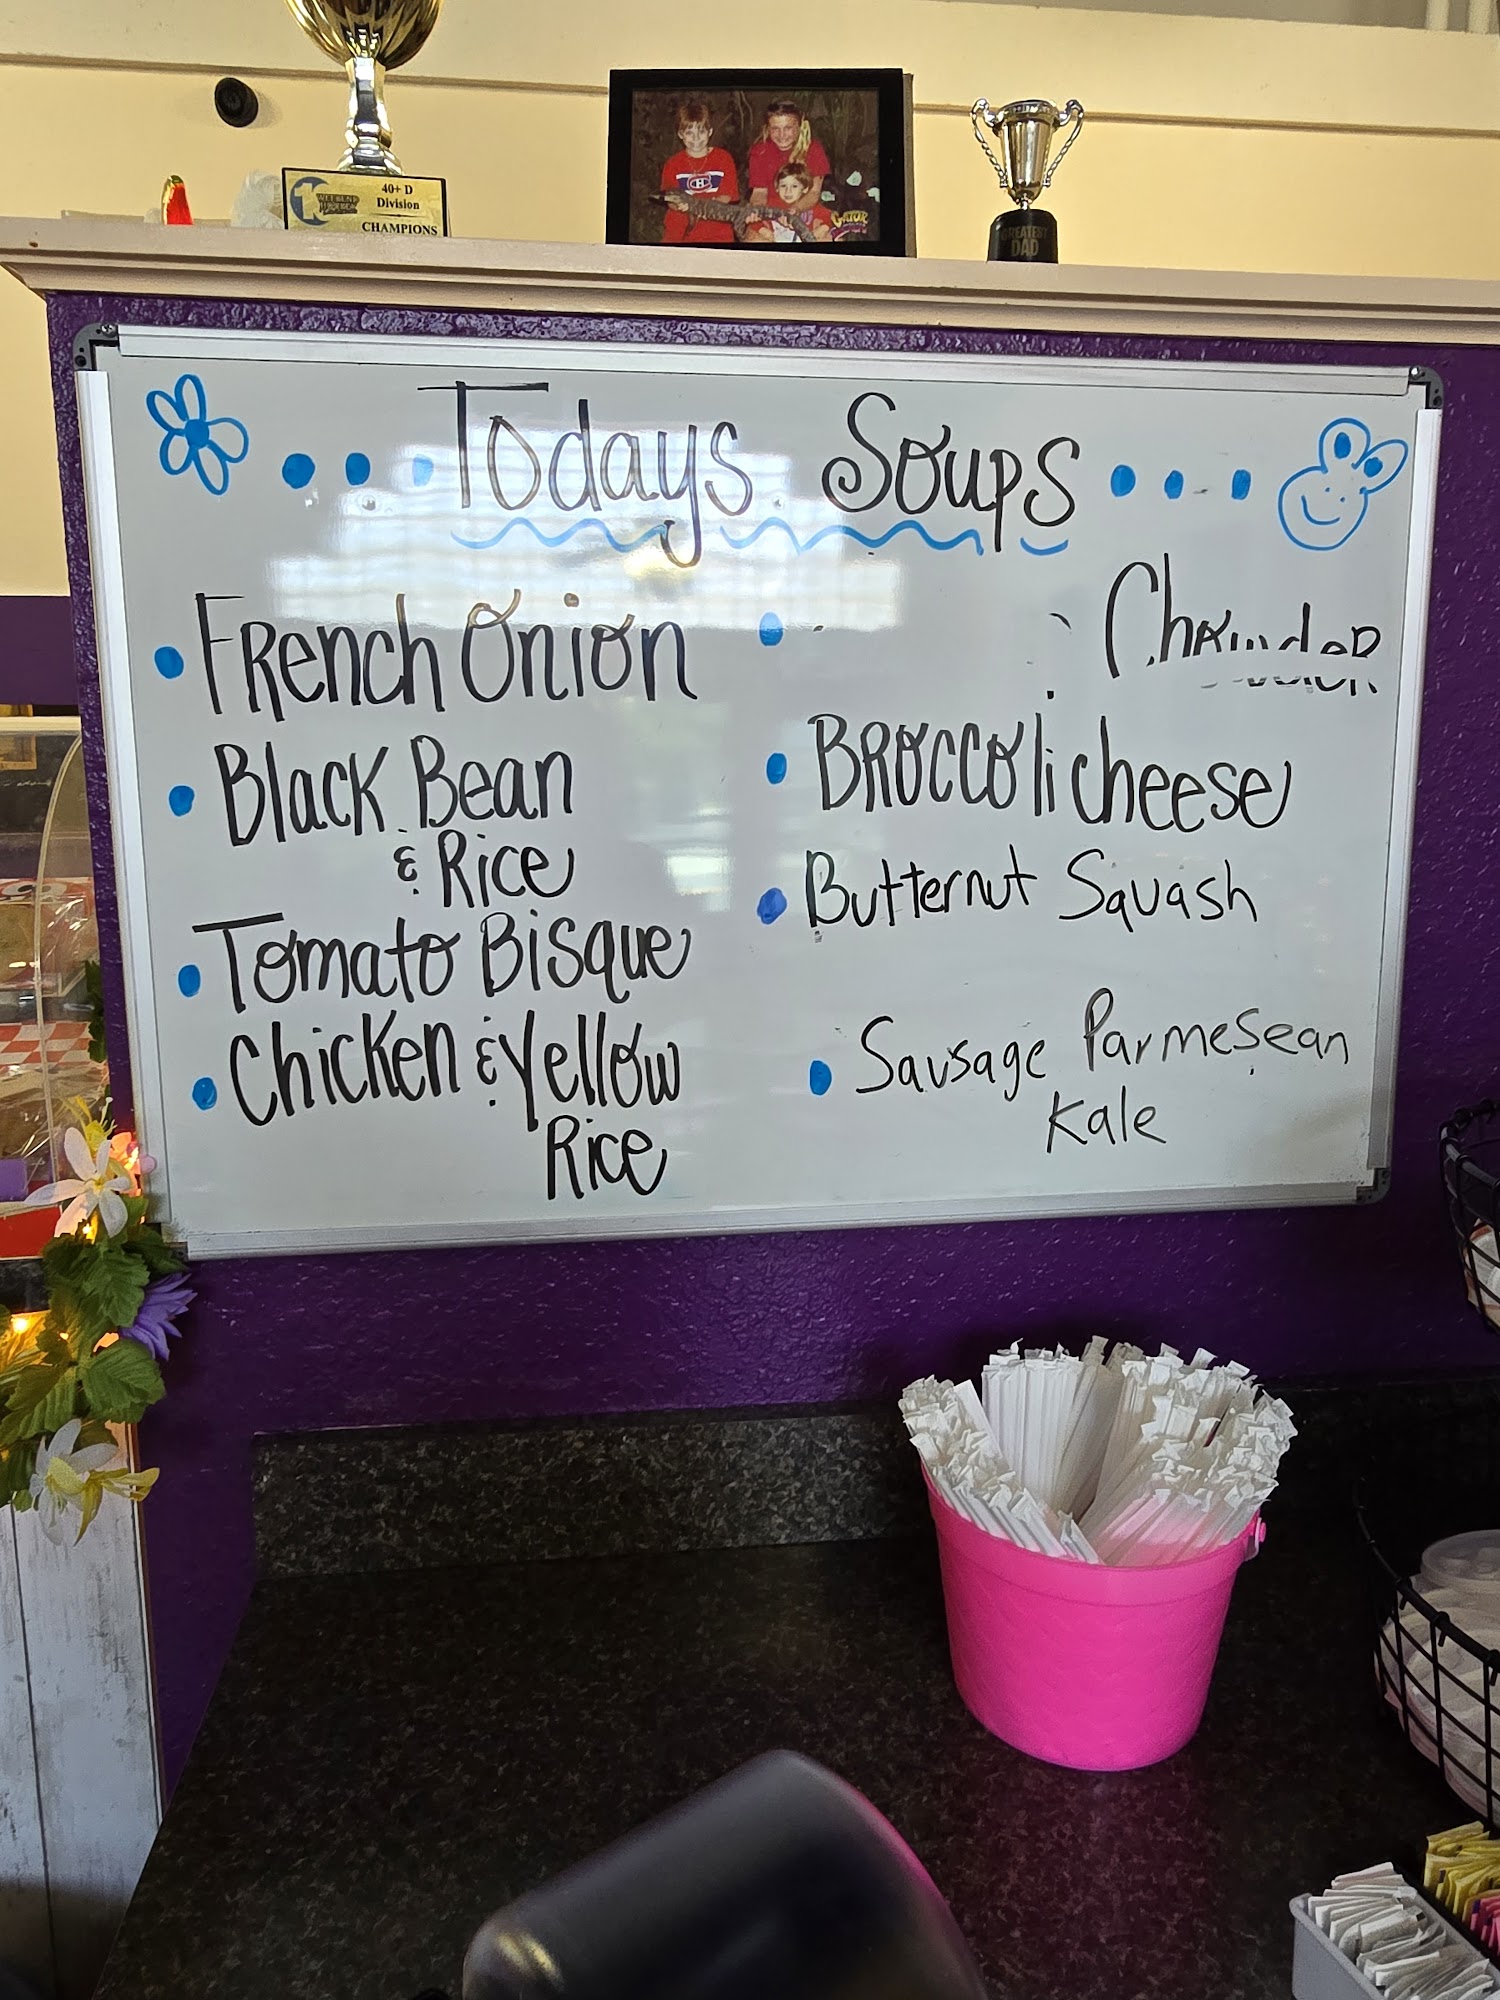 40+ D
Division
CHAMPIONS
GATOR
GREATEST
DAD
Todays Soups
French Onion
Black Bean
& Rice
Tomato Bisque
Chicken & Yellow
Rice
Chowder
Broccoli cheese
Butternut Squash
Sausage Parmesean
Kale